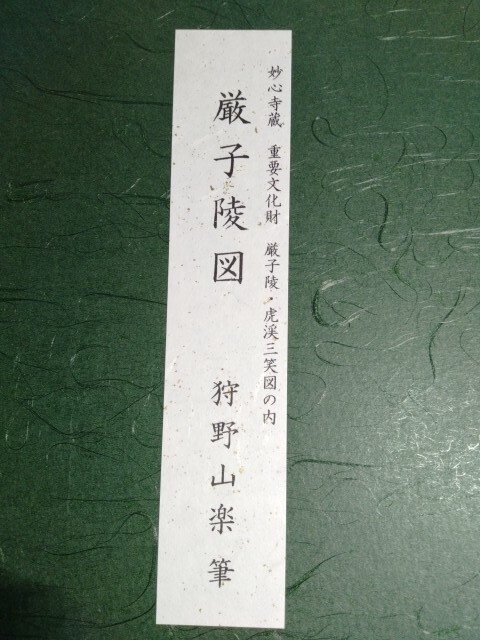 妙心寺蔵　重要文化財　厳子陵・虎渓三笑図の内
厳子陵図　狩野山楽筆